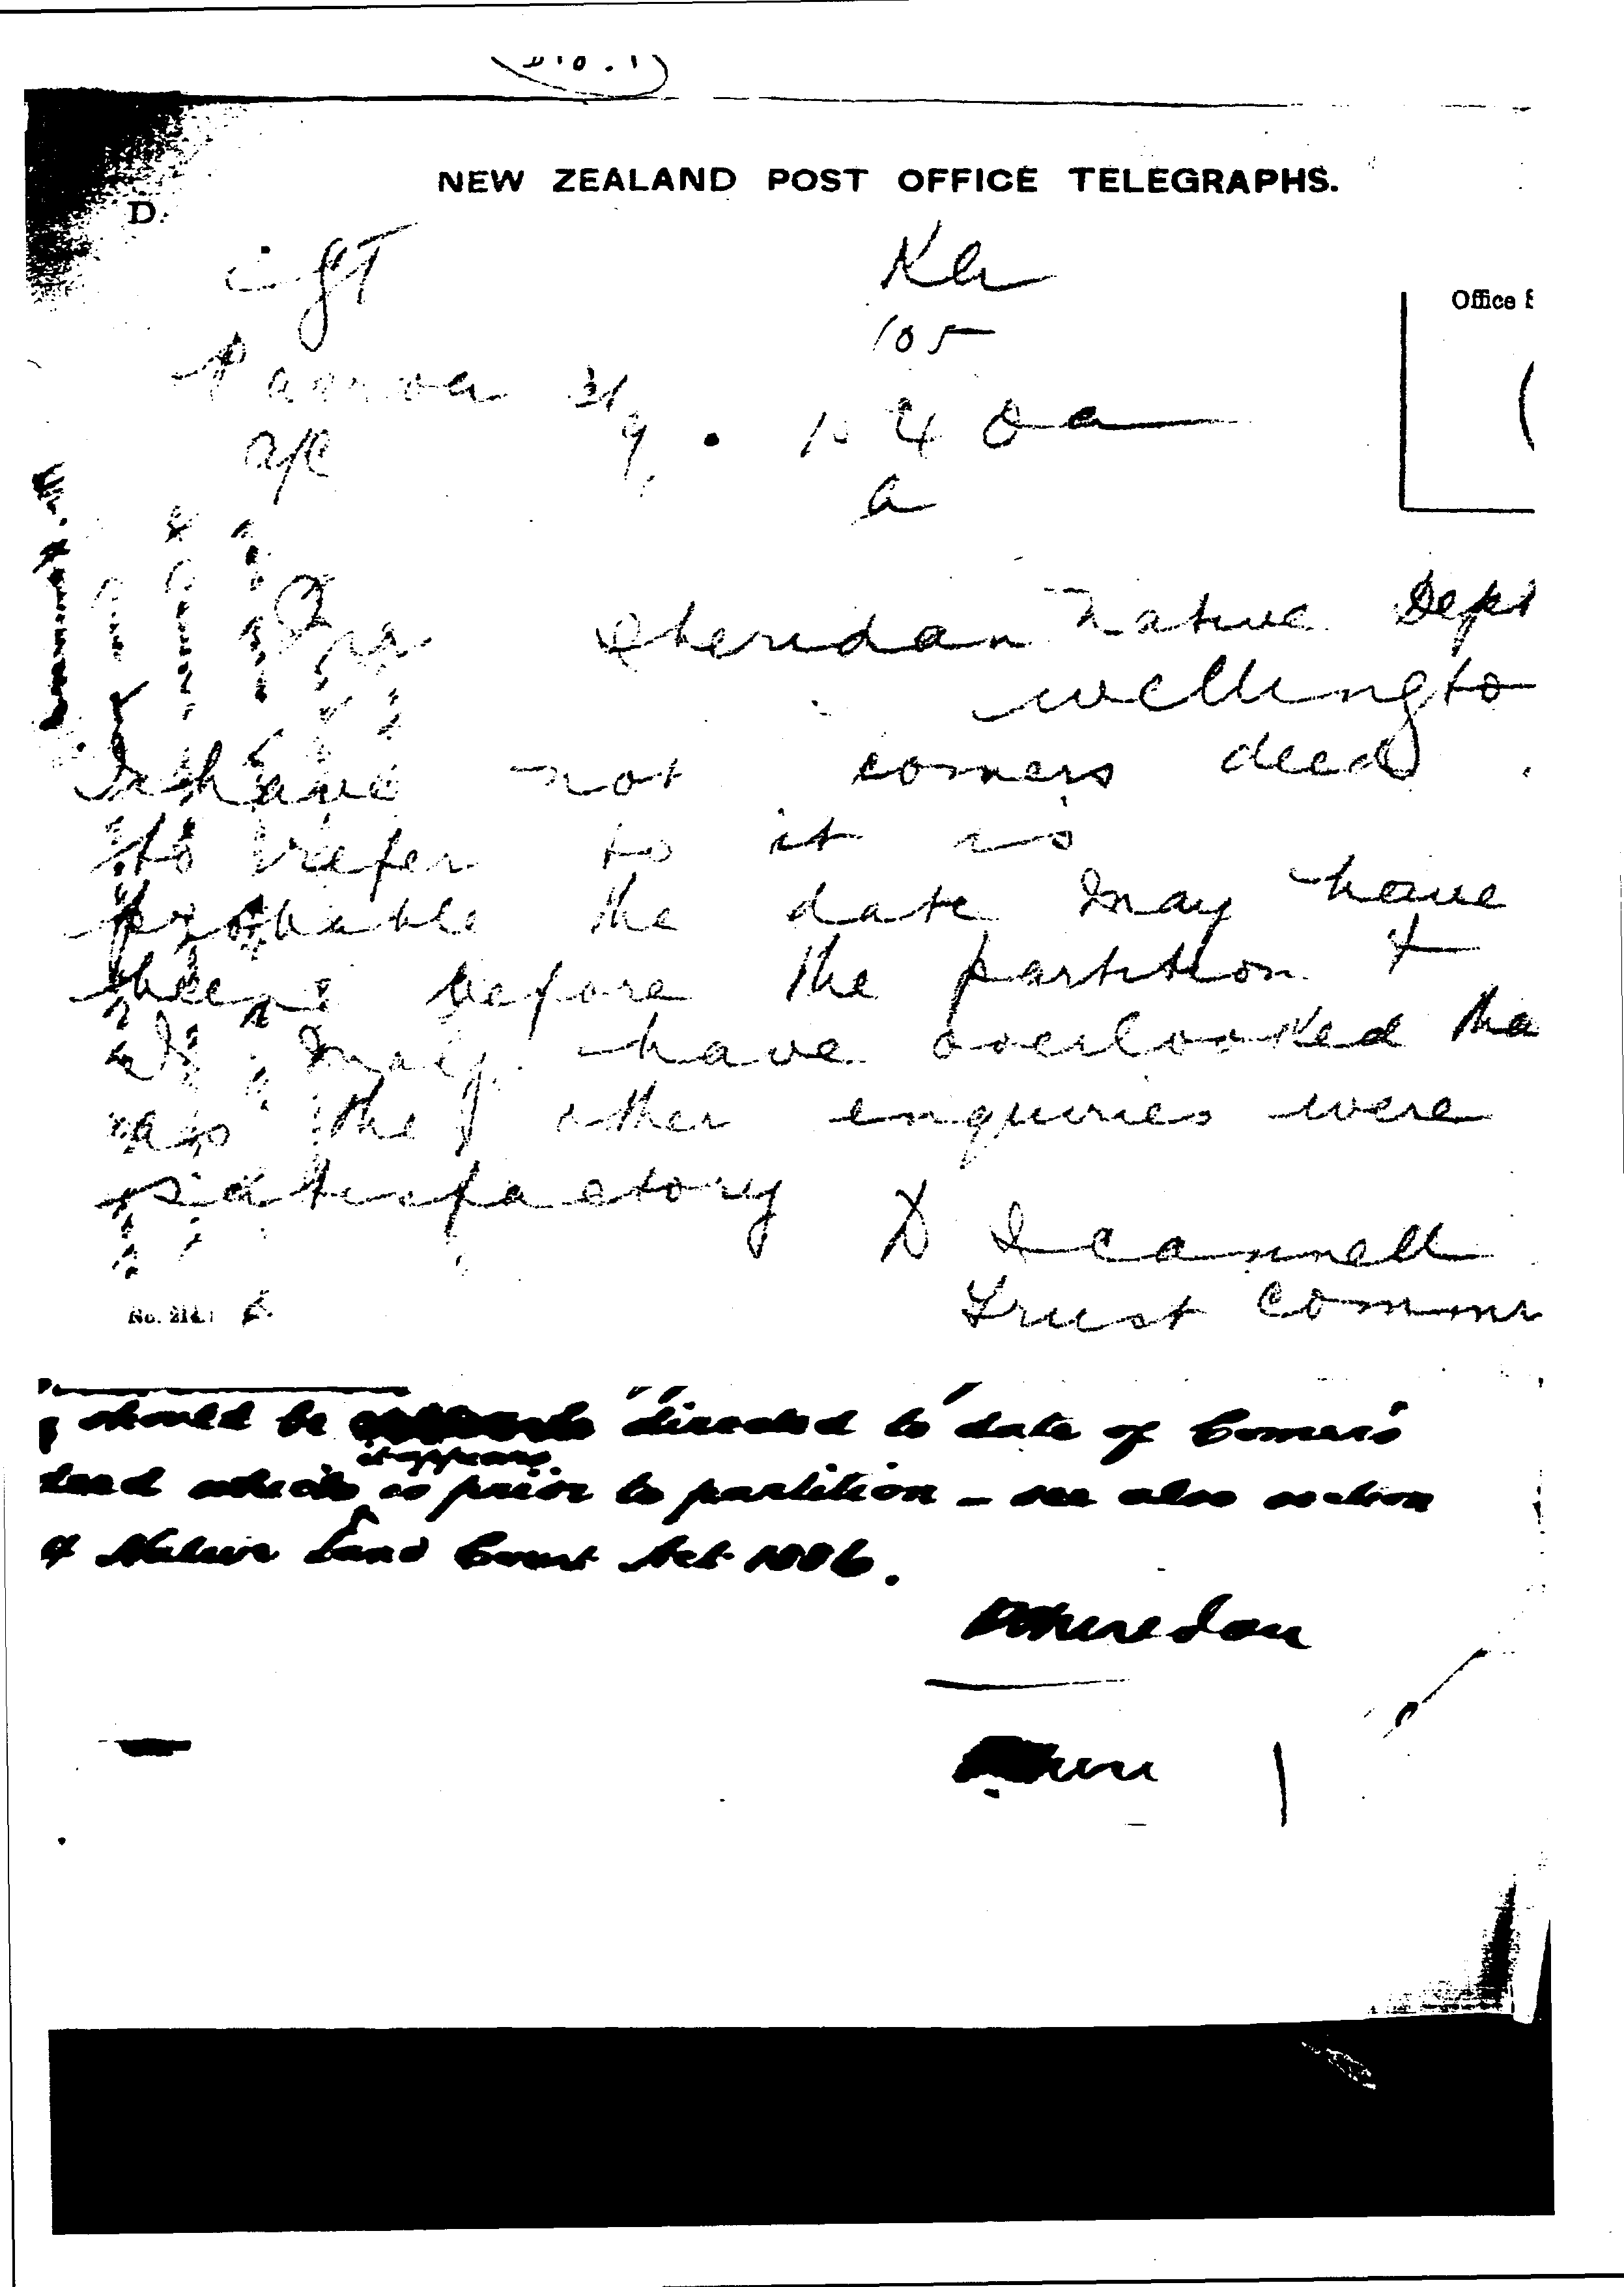 NEW ZEALAND POST OFFICE TELEGRAPHS.
D.
Office
105
Paeroa
Sheridan Native Dept
Wellingto
I have not comers deed
to refer to it is
probable the date may have
been before the partition &
I may have overlooked tha
as the other enquiries were
satisfactory D Scannell
Trust Commr
No. 214.
should be directed to date of Comer's
deed which it appears is prior to partition – see also section
of Native Land Court Act 1886.
PSheridan